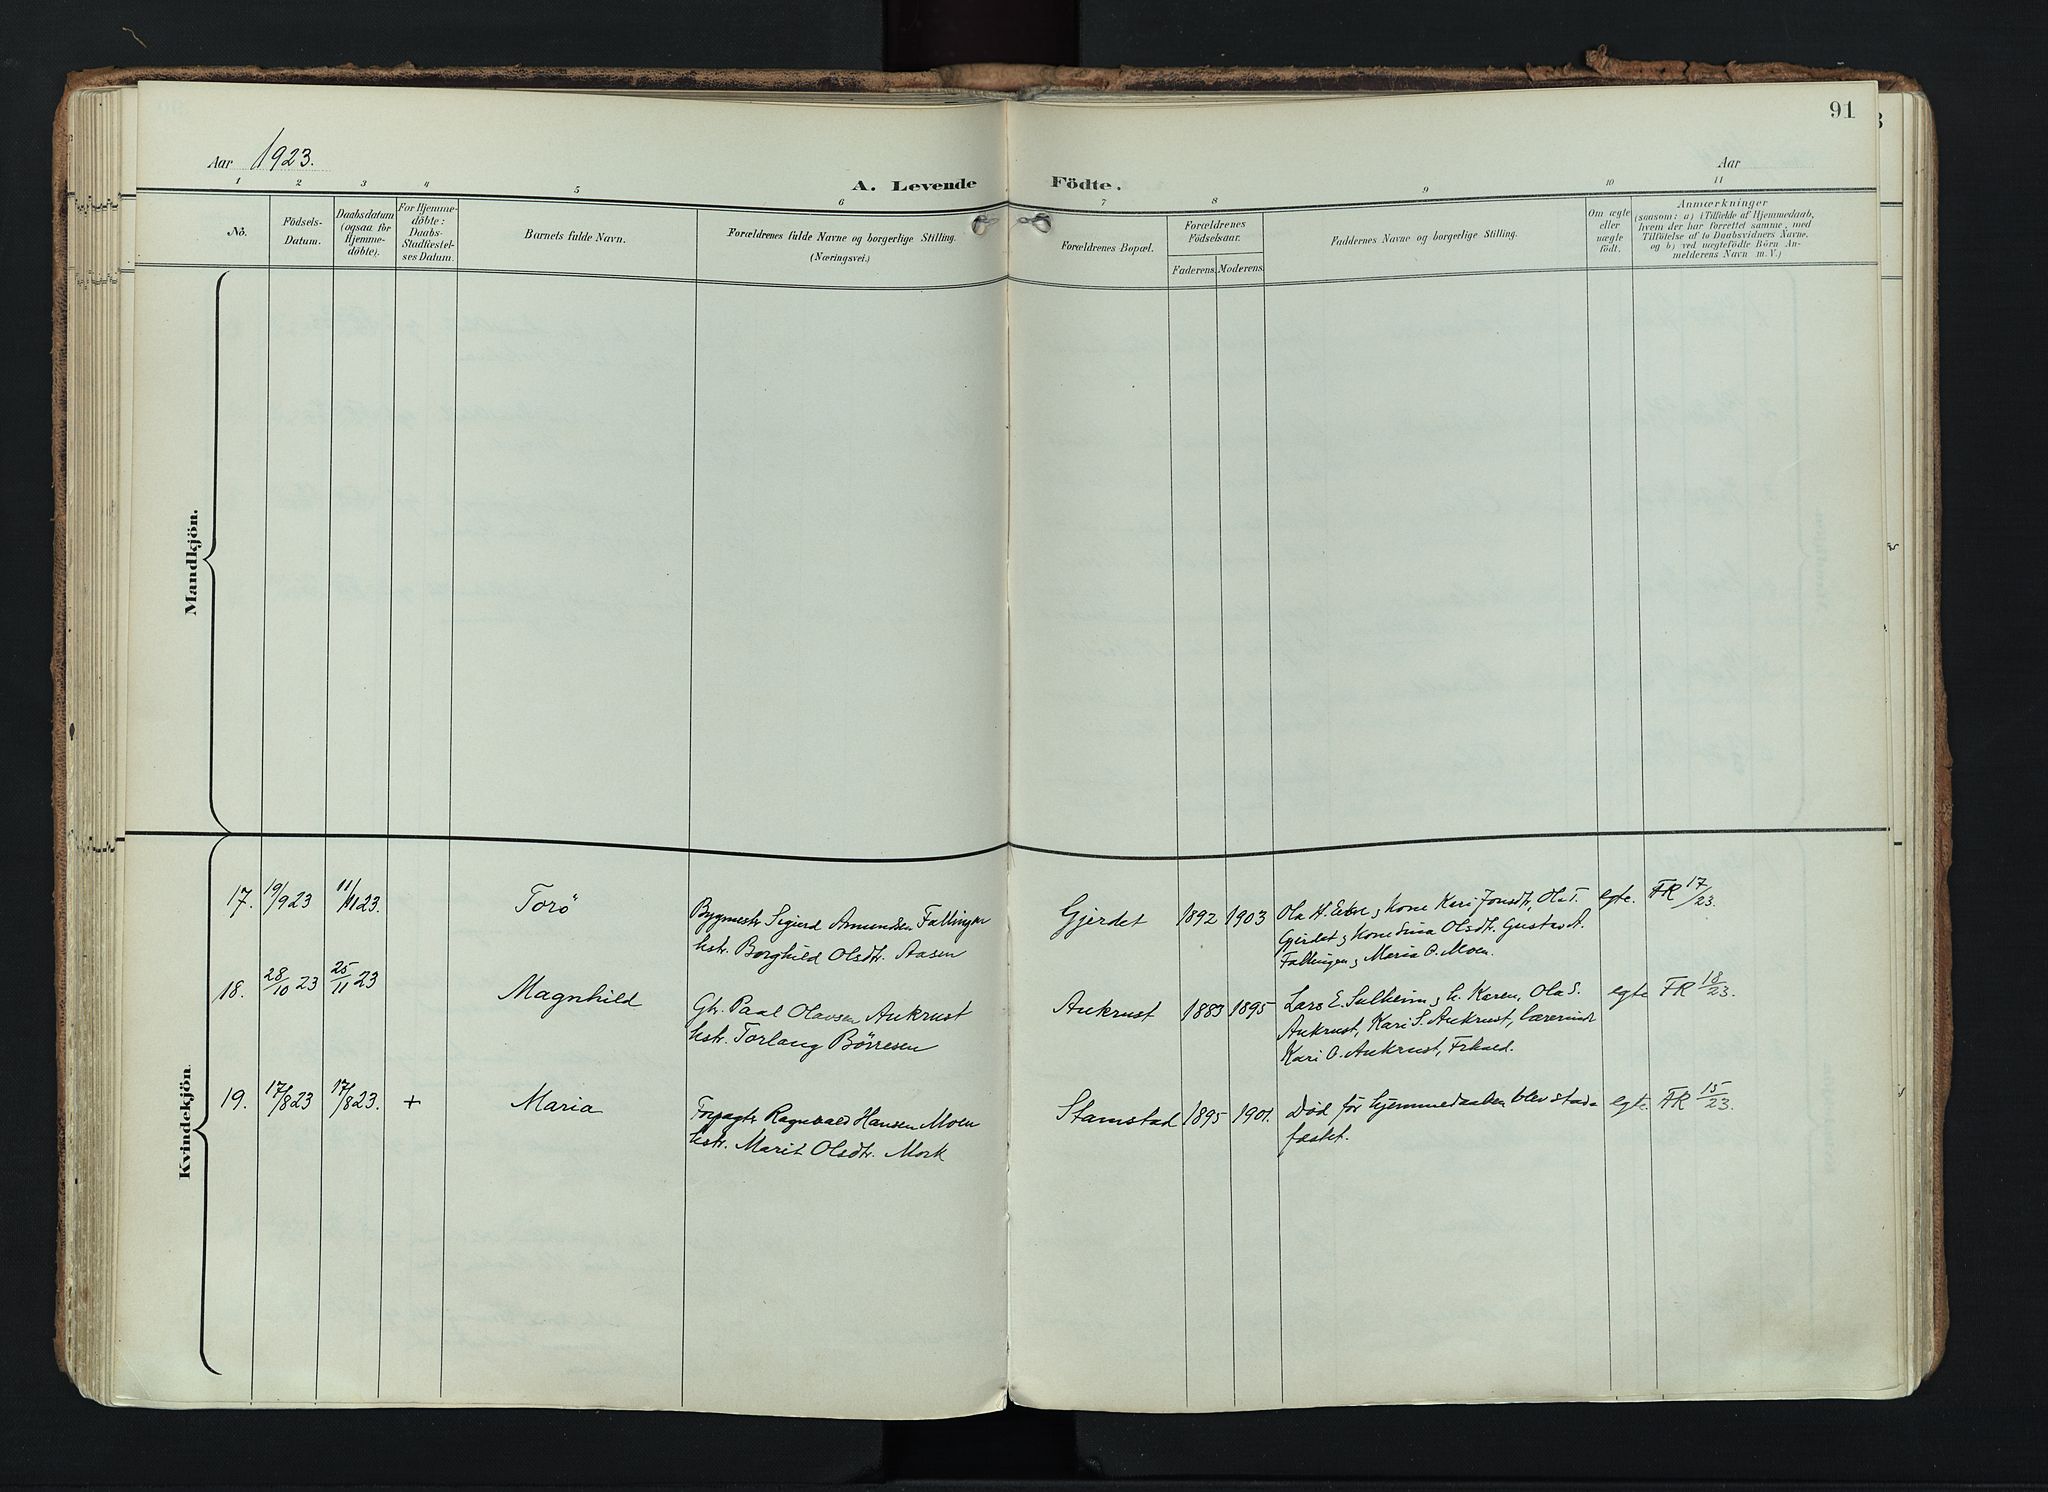 91
Aar 1923.
Aar
1 2 3 4 5 6 7 8 9 10 11
A. Levende Födte.
No.
Födsels-
Datum.
Daabsdatum
(ogsaa for
Hjemme-
döbte).
For Hjemme-
döbte:
Daabs-
Stadfæstel-
ses Datum.
Barnets fulde Navn.
Forældrenes fulde Navne og borgerlige Stilling.
(Næringsvei.)
Forældrenes Bopæl.
Forældrenes
Födselsaar.
Faderens. Moderens.
Faddernes Navne og borgerlige Stilling.
Om ægte
eller
uægte
födt.
Anmærkninger
(saasom: a) i Tilfælde af Hjemmedaab,
hvem der har forrettet samme, med
Tilföielse af to Daabsvidners Navne,
og b) ved uægtefödte Börn An-
melderens Navn m. V.)
Mandkjön.
Kvindekjön.
17. 19/9 23 11/11 23. Torö
Bygmestr. Sigurd Amundsen Fallingen
hstr. Borghild Olsdtr. Aasen
Gjerdet 1892 1903
Ola H. og Kone Kari Jonsdtr, Ola T.
Gjerdet og Kone Olsdtr. Gustav A.
Fallingen og Maria O. Moen.
egte. FR 17/23.
18. 28/10 23 25/11 23 Magnhild
Gbr. Paal Olavsen Aukrust
hstr. Torlaug Børresen
Aukrust 1883 1895
Lars E. Sulheim og h. Karen, Ola S.
Aukrust, Kari S. Aukrust, Lærerinde
Kari O. Aukrust,
egte FR 18/23.
19. 17/8 23 17/8 23. + Maria
Forpagtr. Ragnvald Hansen Moen
hstr. Marit Olsdtr. Mork
Stamstad 1895 1901.
Død før hjemmedaaben blev stad-
fæstet.
egte FR 15/23.